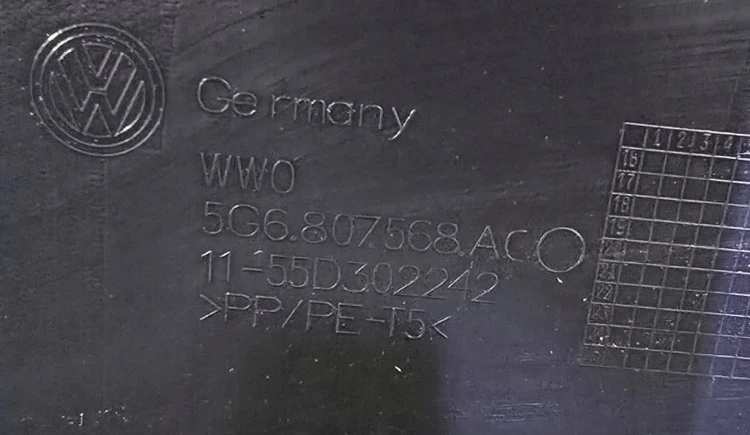 Germany
WWO
5G6.807.568.AC
11-55D302242
>PP/PE-T5<
1 2 3 4
16
17
18
19
20
21
22
23